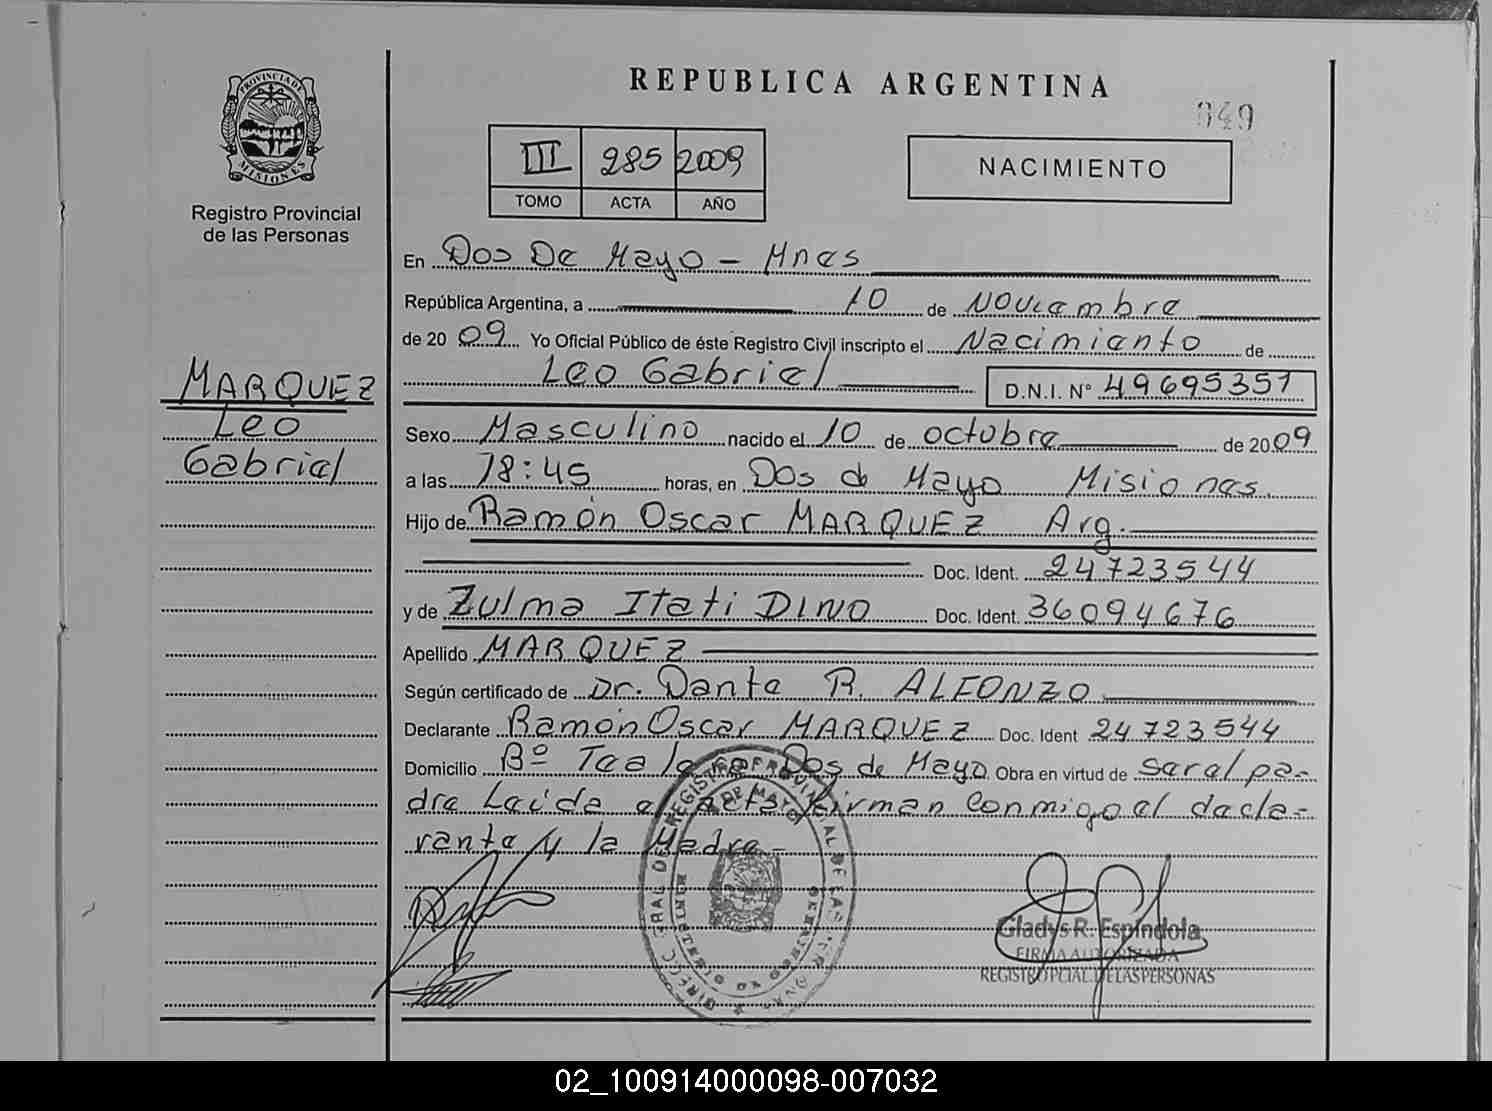 PROVINCIA DE
MISIONES
Registro Provincial
de las Personas
REPUBLICA ARGENTINA
049
III 285 2009
TOMO ACTA AÑO
NACIMIENTO
En Dos De Mayo - Mnes
República Argentina, a 10 de Noviembre
de 2009 Yo Oficial Público de éste Registro Civil inscripto el Nacimiento de
Leo Gabriel D.N.I. Nº 49695351
MARQUEZ
Leo
Gabriel
Sexo Masculino nacido el 10 de octubre de 2009
a las 18:45 horas, en Dos de Mayo Misiones.
Hijo de Ramón Oscar MARQUEZ Arg.
Doc. Ident. 24723544
y de Zulma Itati DINO Doc. Ident. 36094676
Apellido MARQUEZ
Según certificado de Dr. Dante R. ALFONZO
Declarante Ramón Oscar MARQUEZ Doc. Ident 24723544
Domicilio Bº Tea Dos de Mayo Obra en virtud de ser el pa-
dre Leída el acta Firman conmigo el decla-
rante y la Madre -
DE MAYO
Gladys R. Espíndola
FIRMA AUTORIZADA
REGISTRO PCIAL. DE LAS PERSONAS
02_100914000098-007032